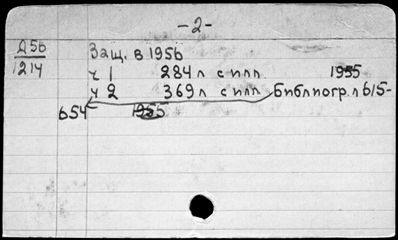 -2-
Д56
1214
Защ. в 1956
ч 1 284 л с илл 1955
ч 2 369 л с илл Библиогр. л 615-
654 1955